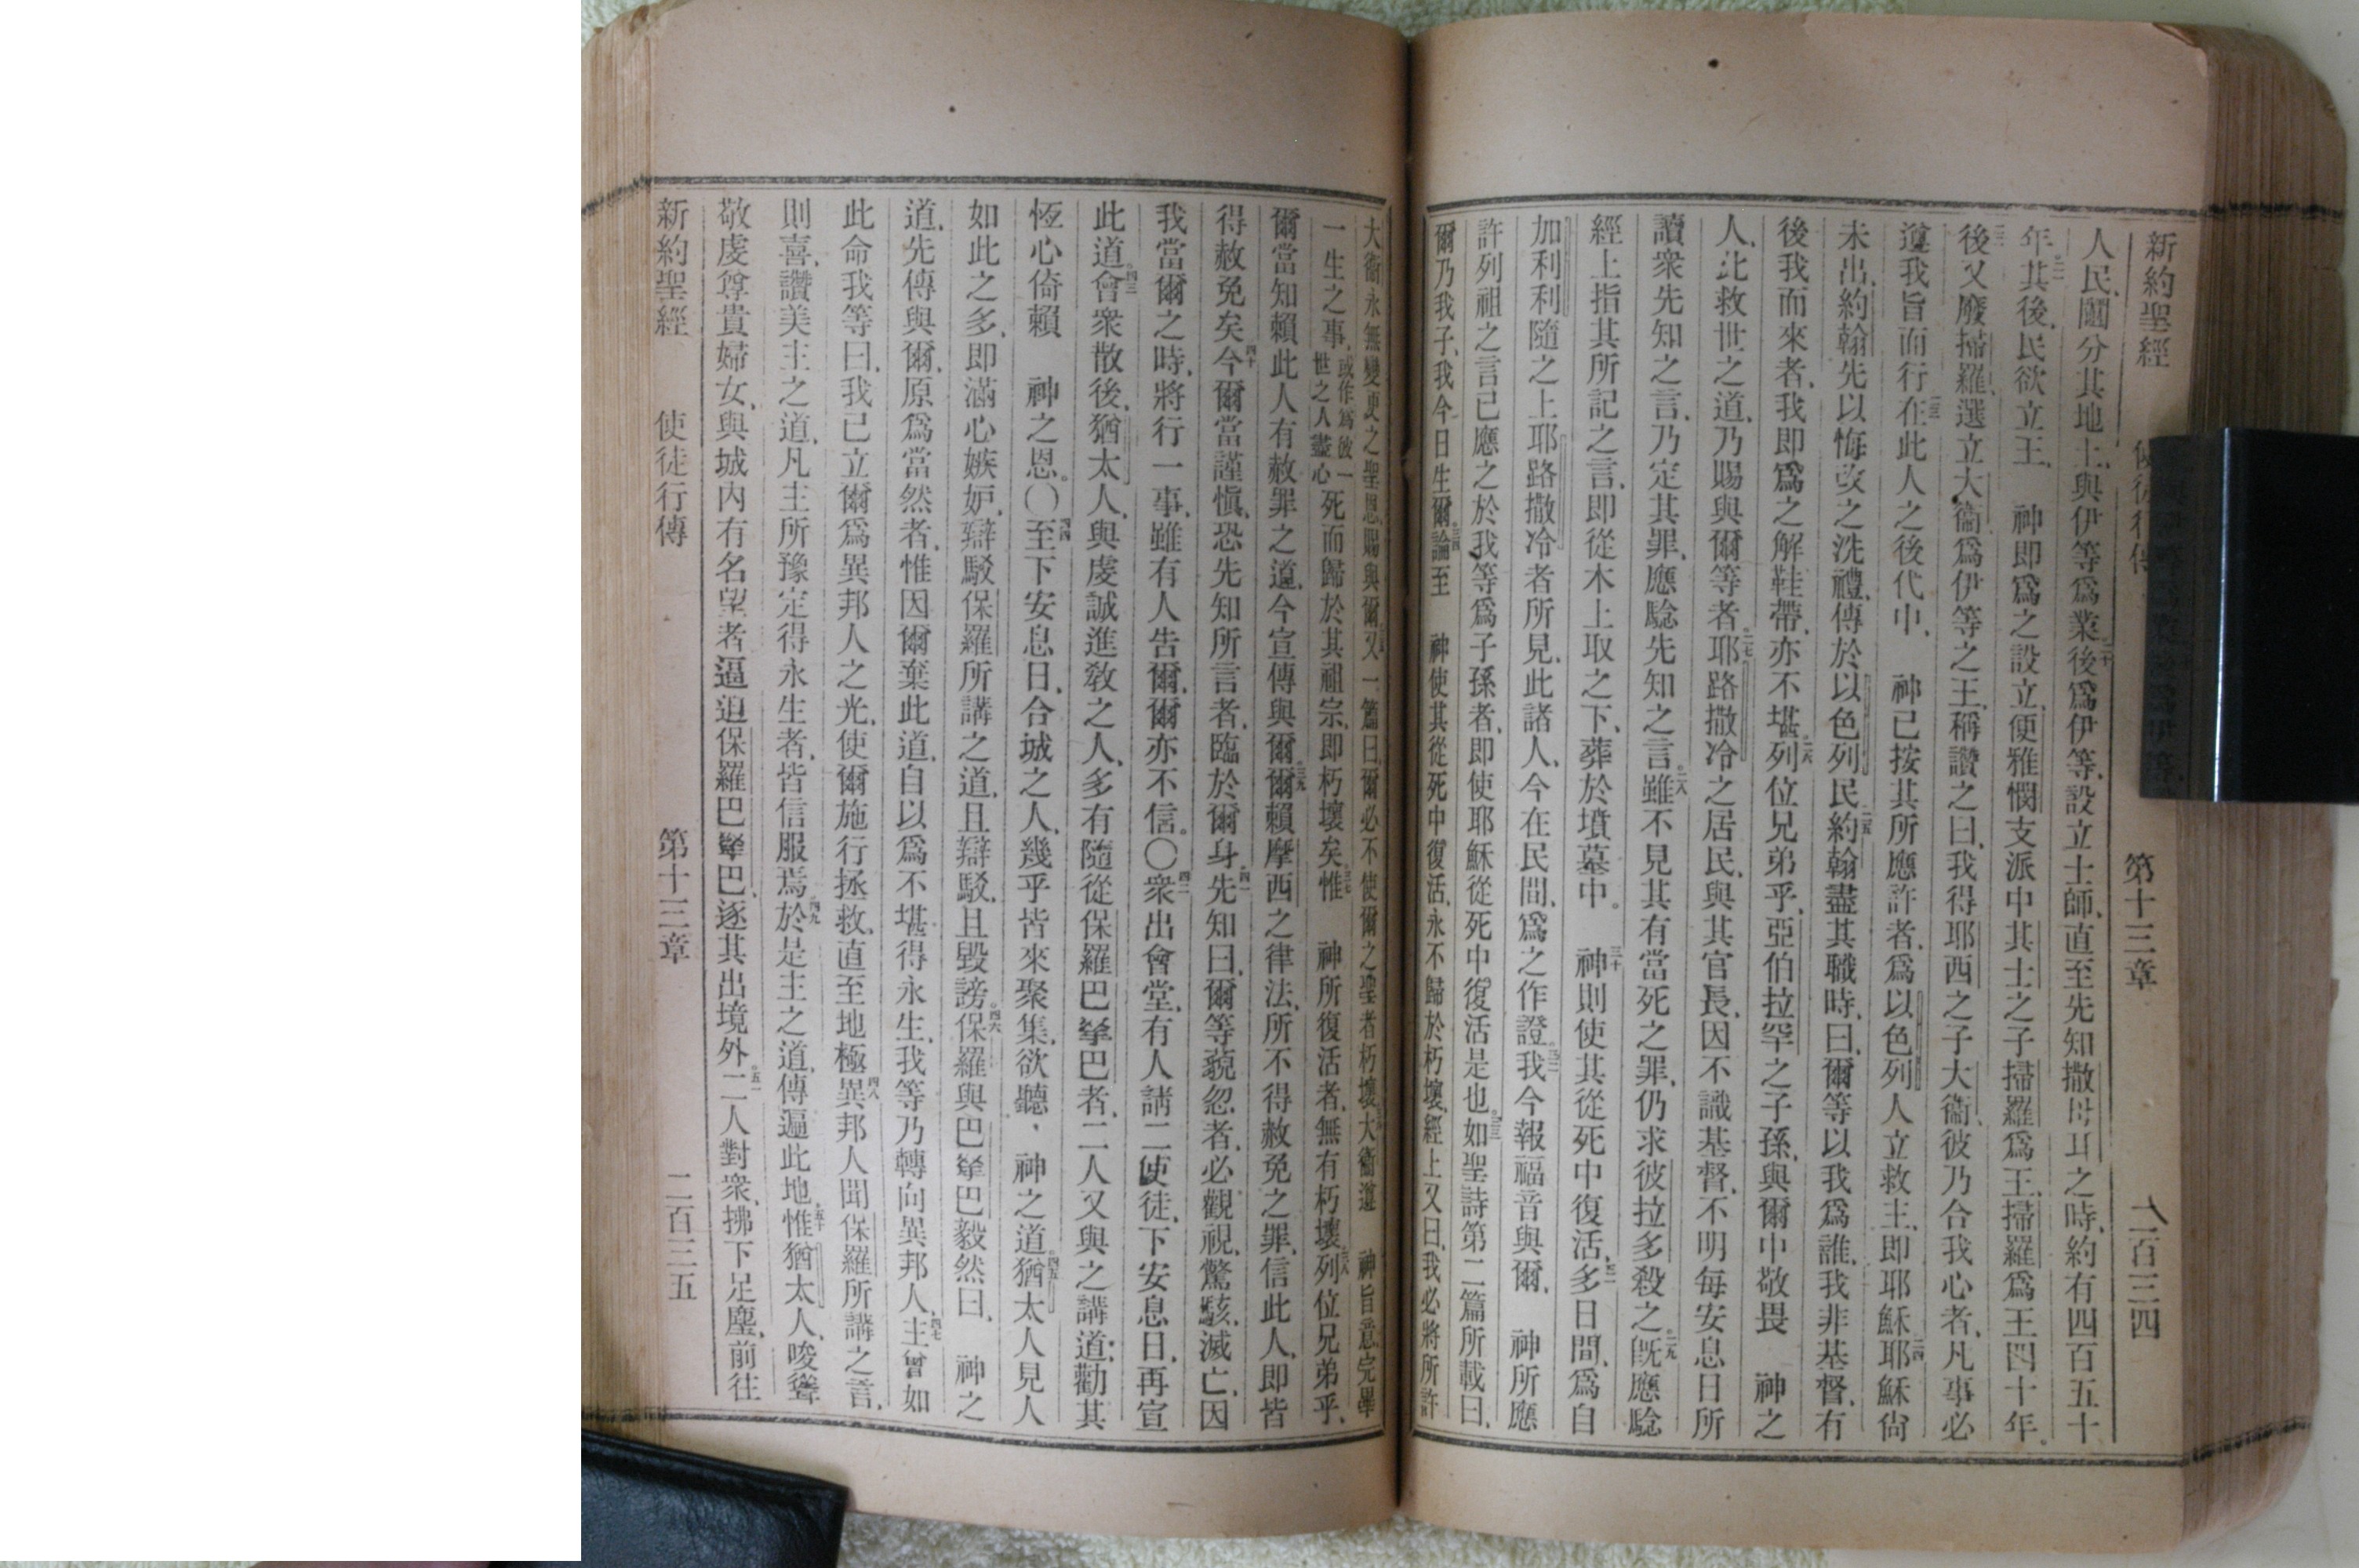 新約聖經 第十三章 二百三四
人民、鬮分其地土、與伊等爲業、二十後爲伊等、設立士師、直至先知撒母耳之時、約有四百五十
年。二一其後、民欲立王、 神卽爲之設立便雅憫支派中、其士之子掃羅爲王、掃羅爲王四十年。
二二後又廢掃羅、選立大衞爲伊等之王、稱讚之曰、我得耶西之子大衞、彼乃合我心者、凡事必
遵我旨而行。二三在此人之後代中、 神已按其所應許者、爲以色列人立救主、卽耶穌、二四耶穌尙
未出、約翰先以悔改之洗禮、傳於以色列民、二五約翰盡其職時、曰、爾等以我爲誰、我非基督、有
後我而來者、我卽爲之解鞋帶、亦不堪。二六列位兄弟乎、亞伯拉罕之子孫、與爾中敬畏 神之
人、此救世之道、乃賜與爾等者、二七耶路撒冷之居民、與其官長、因不識基督、不明每安息日所
讀衆先知之言、乃定其罪、應騐先知之言。二八雖不見其有當死之罪、仍求彼拉多殺之。二九旣應騐
經上指其所記之言、卽從木上取之下、葬於墳墓中。 三十神則使其從死中復活、三一多日間、爲自
加利利隨之上耶路撒冷者所見、此諸人、今在民間、爲之作證。三二我今報福音與爾、 神所應
許列祖之言、已應之於我等爲子孫者、卽使耶穌從死中復活是也。三三如聖詩第二篇所載曰、
爾乃我子、我今日生爾。三四論至 神使其從死中復活、永不歸於朽壞、經上又曰、我必將所許
大衞永無變更之聖恩、賜與爾、又一篇曰、爾必不使爾之聖者朽壞、大衞遵 神旨意、完畢
一生之事、或作爲彼一世之人盡心死而歸於其祖宗、卽朽壞矣、三七惟 神所復活者、無有朽壞。三八列位兄弟乎、
爾當知賴此人有赦罪之道、今宣傳與爾、三九爾賴摩西之律法、所不得赦免之罪、信此人、卽皆
得赦免矣。四十今爾當謹愼、恐先知所言者、臨於爾身、四一先知曰、爾等藐忽者、必觀視、驚駭、滅亡、因
我當爾之時、將行一事、雖有人告爾、爾亦不信。〇四二衆出會堂、有人請二使徒、下安息日、再宣
此道。四三會衆散後、猶太人、與虔誠進敎之人、多有隨從保羅巴拏巴者、二人又與之講道、勸其
恆心倚賴 神之恩。〇四四至下安息日、合城之人、幾乎皆來聚集、欲聽、 神之道。四五猶太人見人
如此之多、卽滿心嫉妒、辯駁保羅所講之道、且辯駁、且毀謗。四六保羅與巴拏巴毅然曰、 神之
道、先傳與爾、原爲當然者、惟因爾棄此道、自以爲不堪得永生、我等乃轉向異邦人、四七主曾如
此命我等曰、我已立爾爲異邦人之光、使爾施行拯救、直至地極。四八異邦人聞保羅所講之言、
則喜、讚美主之道、凡主所豫定得永生者、皆信服焉。四九於是主之道、傳遍此地。五十惟猶太人、唆聳
敬虔尊貴婦女、與城內有名望者、逼迫保羅巴拏巴、逐其出境外。五一二人對衆、拂下足塵、前往
新約聖經 使徒行傳 第十三章 二百三五